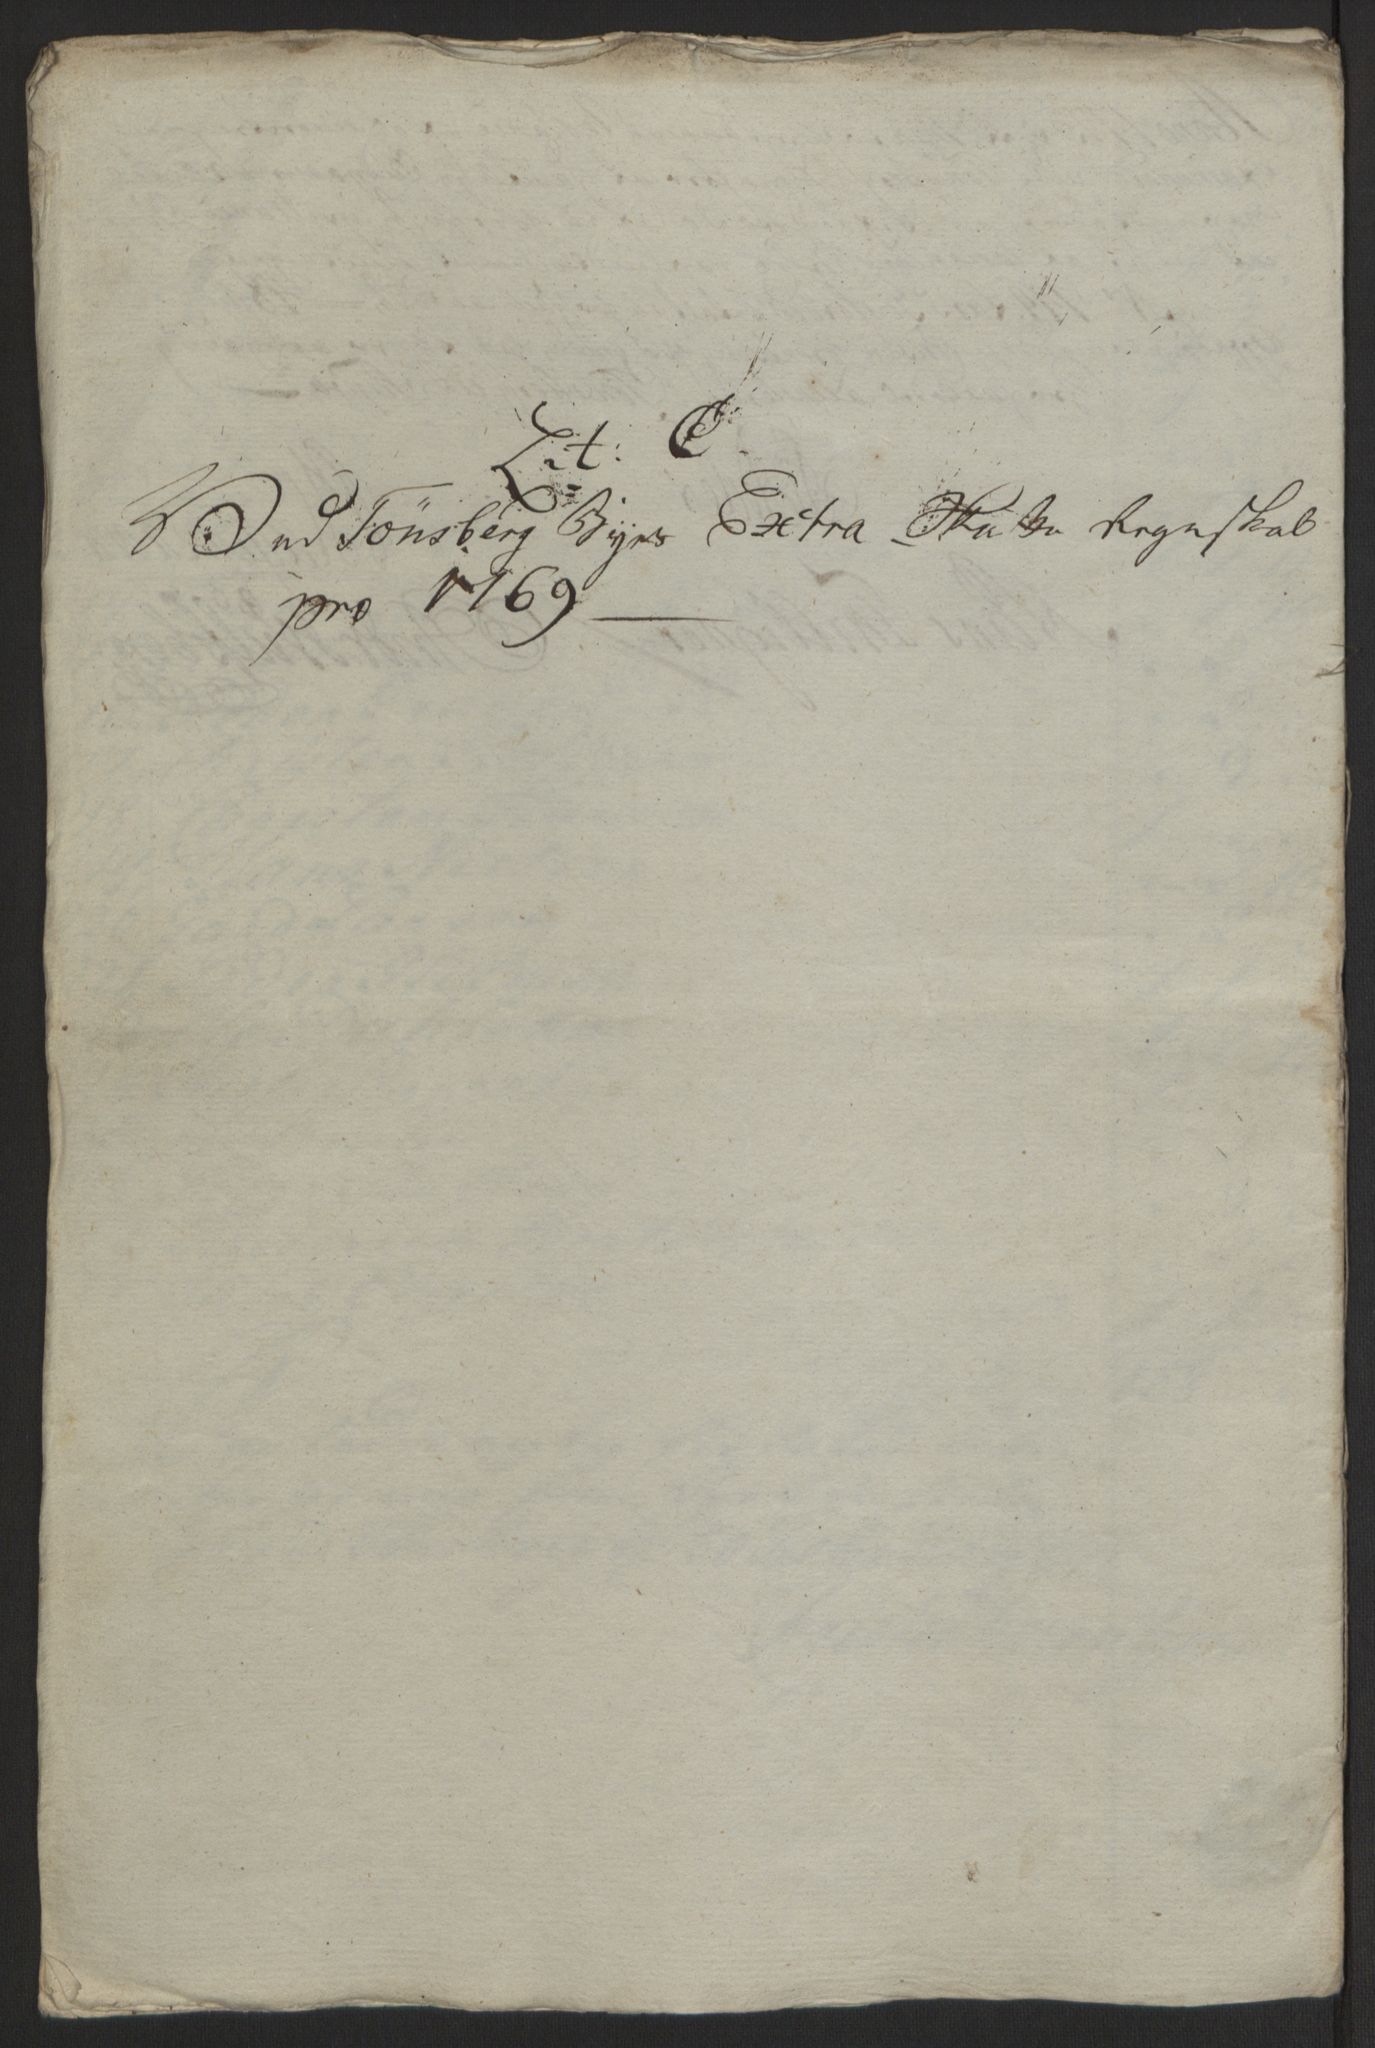 Lit: C.
Ved Tönsberg Byes Extra Skatte Regnskab
pro 1769